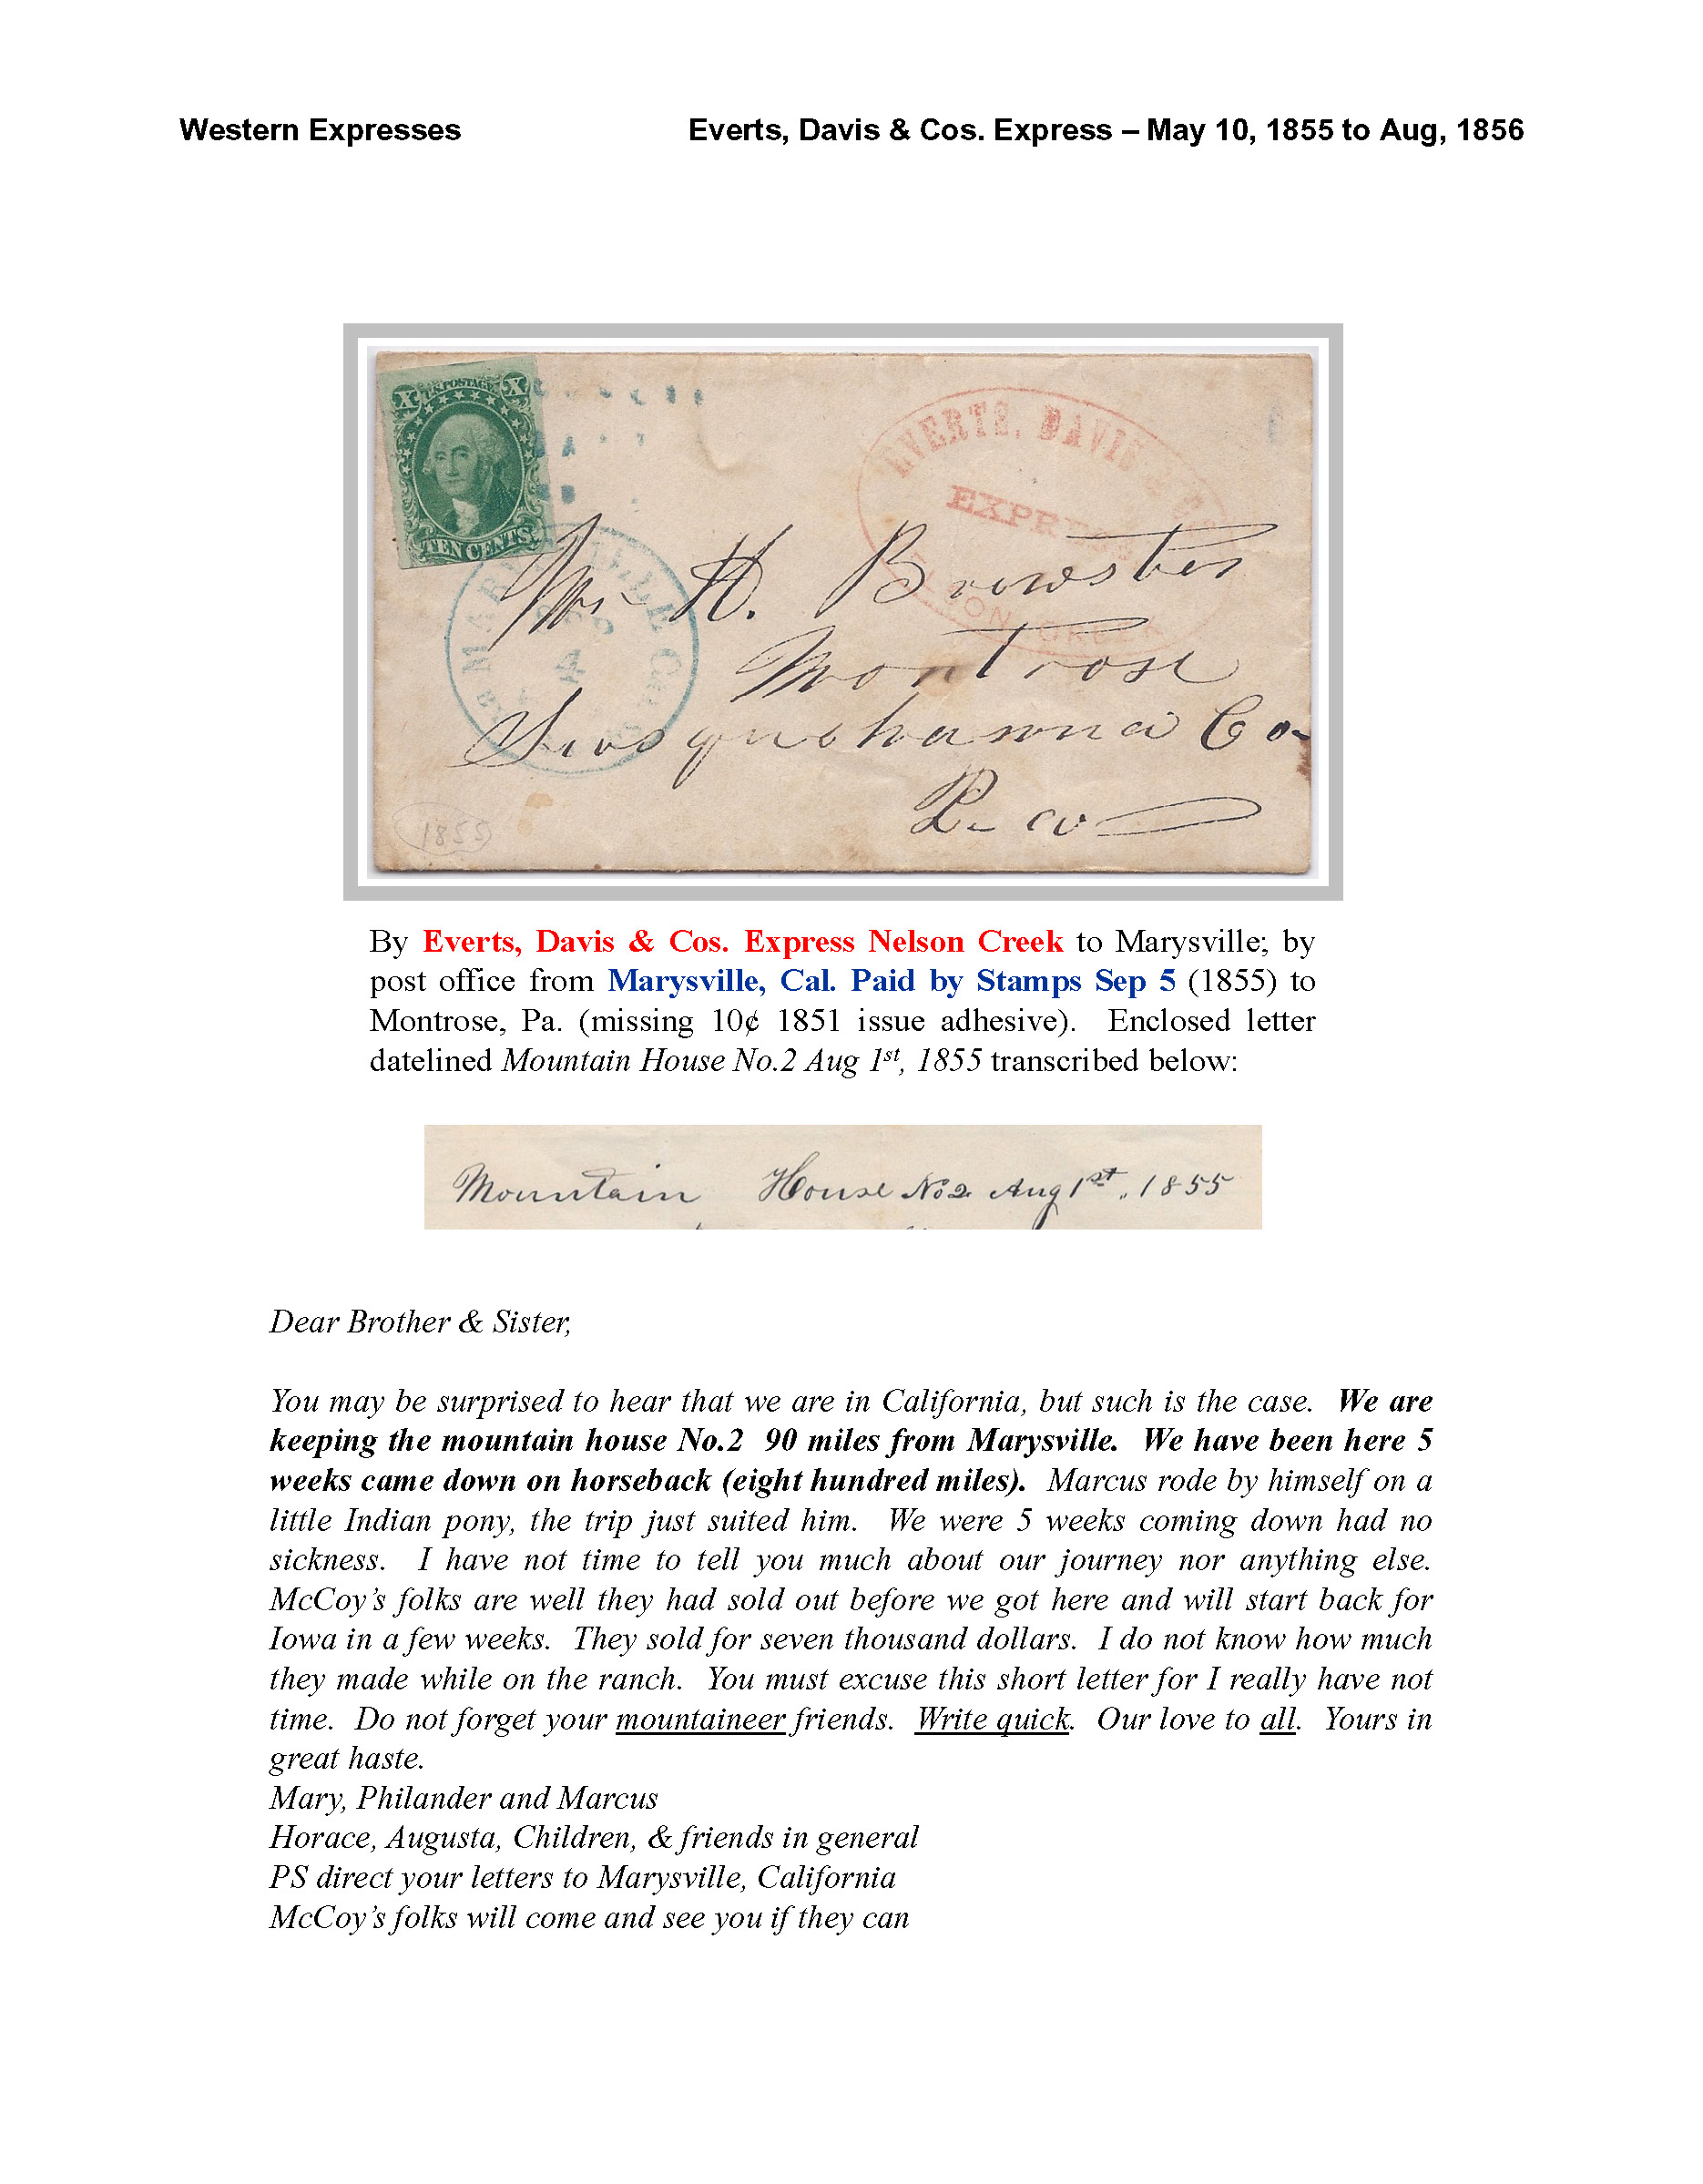 Western Expresses Everts, Davis & Cos. Express – May 10, 1855 to Aug, 1856
X U.S. POSTAGE X
TEN CENTS
EVERTS, DAVIS & CO
EXPRESS
MARYSVILLE Cal
SEP
4
Mr H. Brewster
Montrose
Susquehanna Co
Pa
1855
By Everts, Davis & Cos. Express Nelson Creek to Marysville; by
post office from Marysville, Cal. Paid by Stamps Sep 5 (1855) to
Montrose, Pa. (missing 10¢ 1851 issue adhesive). Enclosed letter
datelined Mountain House No.2 Aug 1st, 1855 transcribed below:
Mountain House No 2 Aug 1st, 1855
Dear Brother & Sister,
You may be surprised to hear that we are in California, but such is the case. We are
keeping the mountain house No.2 90 miles from Marysville. We have been here 5
weeks came down on horseback (eight hundred miles). Marcus rode by himself on a
little Indian pony, the trip just suited him. We were 5 weeks coming down had no
sickness. I have not time to tell you much about our journey nor anything else.
McCoy’s folks are well they had sold out before we got here and will start back for
Iowa in a few weeks. They sold for seven thousand dollars. I do not know how much
they made while on the ranch. You must excuse this short letter for I really have not
time. Do not forget your mountaineer friends. Write quick. Our love to all. Yours in
great haste.
Mary, Philander and Marcus
Horace, Augusta, Children, & friends in general
PS direct your letters to Marysville, California
McCoy’s folks will come and see you if they can